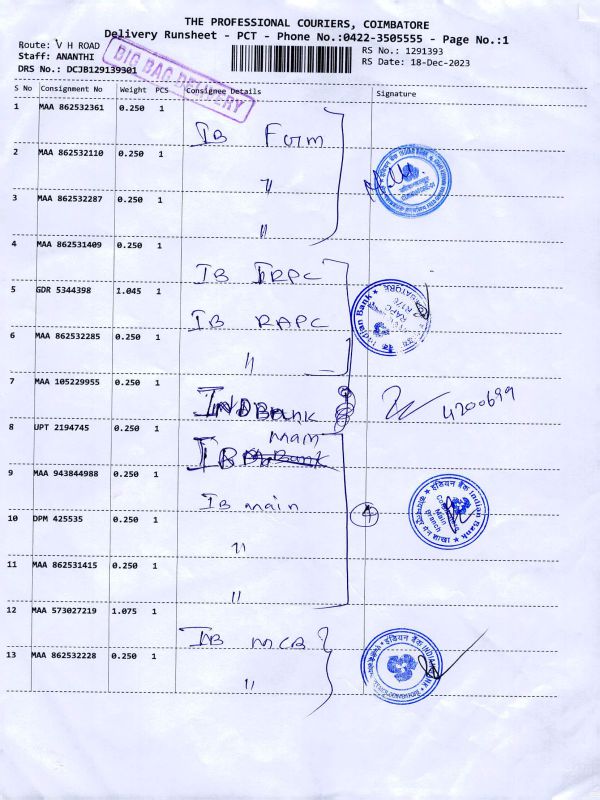 THE PROFESSIONAL COURIERS, COIMBATORE
Delivery Runsheet - PCT - Phone No.:0422-3505555 - Page No.:1
Route: V H ROAD
Staff: ANANTHI
DRS No.: DCJB129139301
RS No.: 1291393
RS Date: 18-Dec-2023
BIG BAG DELIVERY
S No Consignment No Weight PCS Consignee Details Signature
1 MAA 862532361 0.250 1
IB Form
2 MAA 862532110 0.250 1
"
3 MAA 862532287 0.250 1
"
4 MAA 862531409 0.250 1
IB IRPC
5 GDR 5344398 1.045 1
IB RAPC
Indian Bank
RAPC
6 MAA 862532285 0.250 1
"
7 MAA 105229955 0.250 1
INDBank
4200699
8 UPT 2194745 0.250 1
IB main
9 MAA 943844988 0.250 1
IB main
4
इंडियन बैंक Indian Bank
Main
Branch
10 DPM 425535 0.250 1
"
11 MAA 862531415 0.250 1
"
12 MAA 573027219 1.075 1
INB MCB
इंडियन बैंक INDIAN BANK
13 MAA 862532228 0.250 1
"